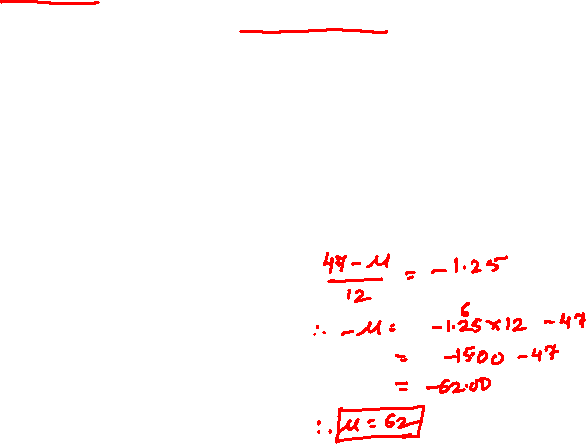 47 - μ / 12 = -1.25
∴ -μ = -1.25 × 12 - 47
= -15.00 - 47
= -62.00
∴ μ = 62